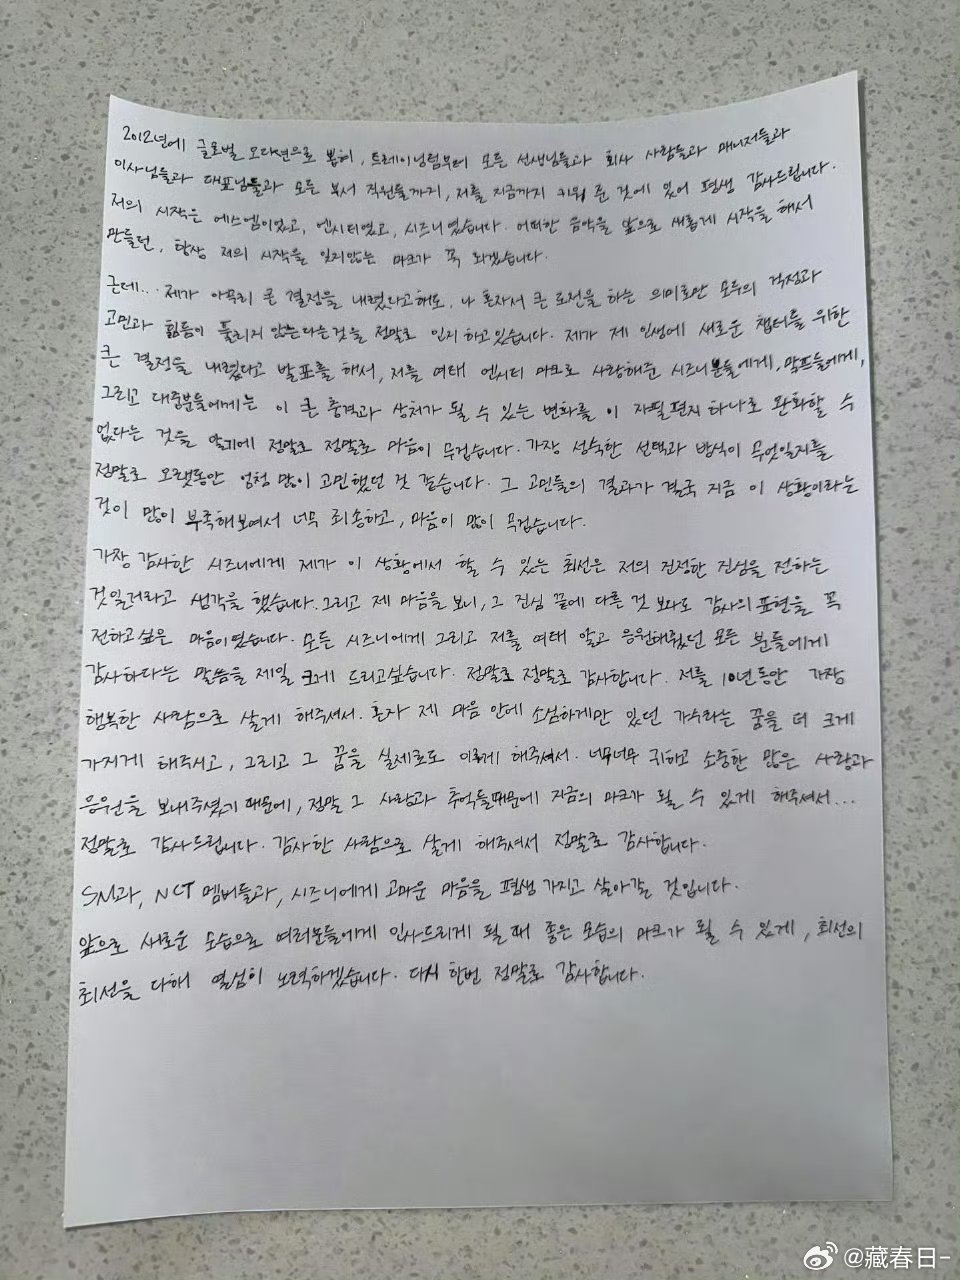 2012년에 글로벌 오디션으로 뽑혀, 트레이닝팀부터 모든 선생님들과 회사 사람들과 매니저들과
이사님들과 대표님들과 모든 부서 직원들까지, 저를 지금까지 키워 준 것에 있어 평생 감사드립니다.
저의 시작은 에스엠이었고, 엔시티였고, 시즈니였습니다. 어떠한 음악을 앞으로 새롭게 시작을 해서
만들던, 항상 저의 시작을 잊지않는 마크가 꼭 되겠습니다.
근데... 제가 아무리 큰 결정을 내렸다고해도, 나 혼자서 큰 도전을 하는 의미로만 모두의 걱정과
고민과 힘듬이 풀리지 않는다는것을 정말로 인지하고있습니다. 제가 제 인생에 새로운 챕터를 위한
큰 결정을 내렸다고 발표를 해서, 저를 여태 엔시티 마크로 사랑해준 시즈니분들에게, 맘프들에게,
그리고 대중분들에게는 이 큰 충격과 상처가 될 수 있는 변화를 이 자필편지 하나로 완화할 수
없다는 것을 알기에 정말로 정말로 마음이 무겁습니다. 가장 성숙한 선택과 방식이 무엇일지를
정말로 오랫동안 엄청 많이 고민했던 것 같습니다. 그 고민들의 결과가 결국 지금 이 상황이라는
것이 많이 부족해보여서 너무 죄송하고, 마음이 많이 무겁습니다.
가장 감사한 시즈니에게 제가 이 상황에서 할 수 있는 최선은 저의 진정한 진심을 전하는
것일거라고 생각을 했습니다. 그리고 제 마음을 보니, 그 진심 끝에 다른 것 보다도 감사의 표현을 꼭
전하고싶은 마음이였습니다. 모든 시즈니에게 그리고 저를 여태 알고 응원해줬던 모든 분들에게
감사하다는 말씀을 제일 크게 드리고싶습니다. 정말로 정말로 감사합니다. 저를 10년동안 가장
행복한 사람으로 살게 해주셔서. 혼자 제 마음 안에 소심하게만 있던 가수라는 꿈을 더 크게
가지게 해주시고, 그리고 그 꿈을 실제로도 이루게 해주셔서. 너무너무 귀하고 소중한 많은 사랑과
응원을 보내주셨기 때문에, 정말 그 사랑과 추억들때문에 지금의 마크가 될 수 있게 해주셔서...
정말로 감사드립니다. 감사한 사람으로 살게 해주셔서 정말로 감사합니다.
SM과, NCT 멤버들과, 시즈니에게 고마운 마음을 평생 가지고 살아갈 것입니다.
앞으로 새로운 모습으로 여러분들에게 인사드리게 될 때 좋은 모습의 마크가 될 수 있게, 최선의
최선을 다해 열심히 노력하겠습니다. 다시 한번 정말로 감사합니다.
@藏春日-